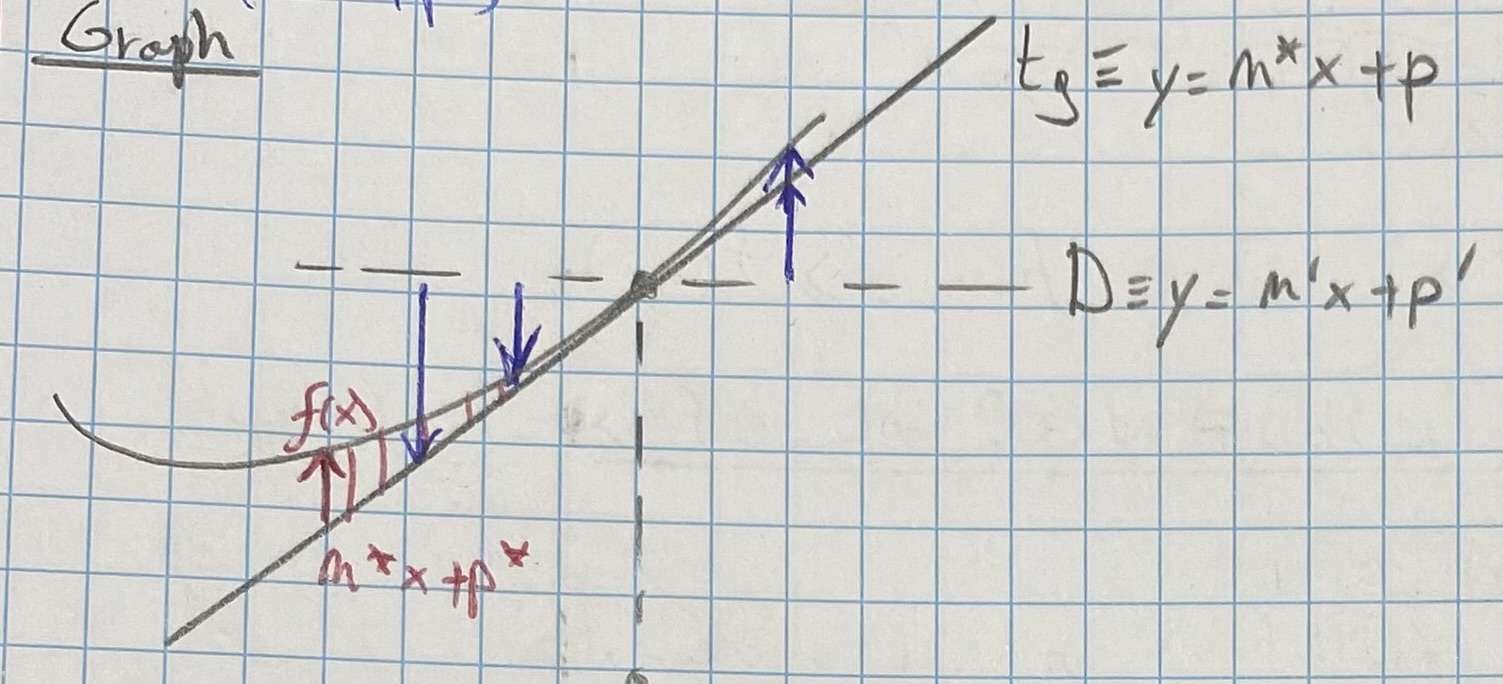 Graph
tg ≡ y = m*x + p
D ≡ y = m'x + p'
f(x)
m*x + p*